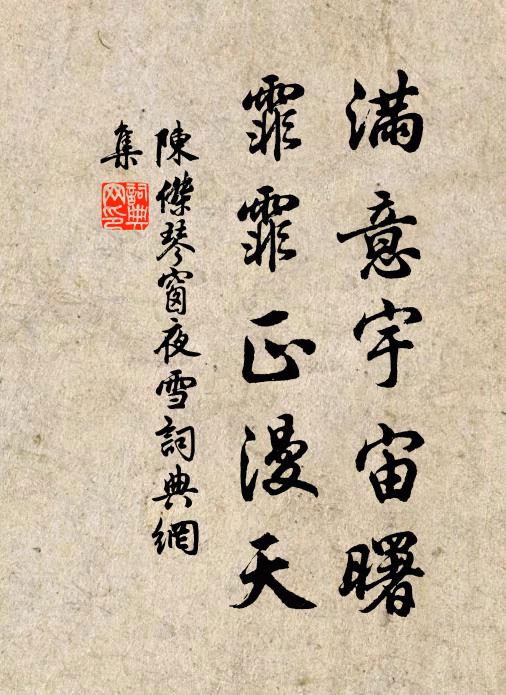 滿意宇宙曙
霏霏正漫天
陳傑琴窗夜雪詞典網
集
詞典
网印